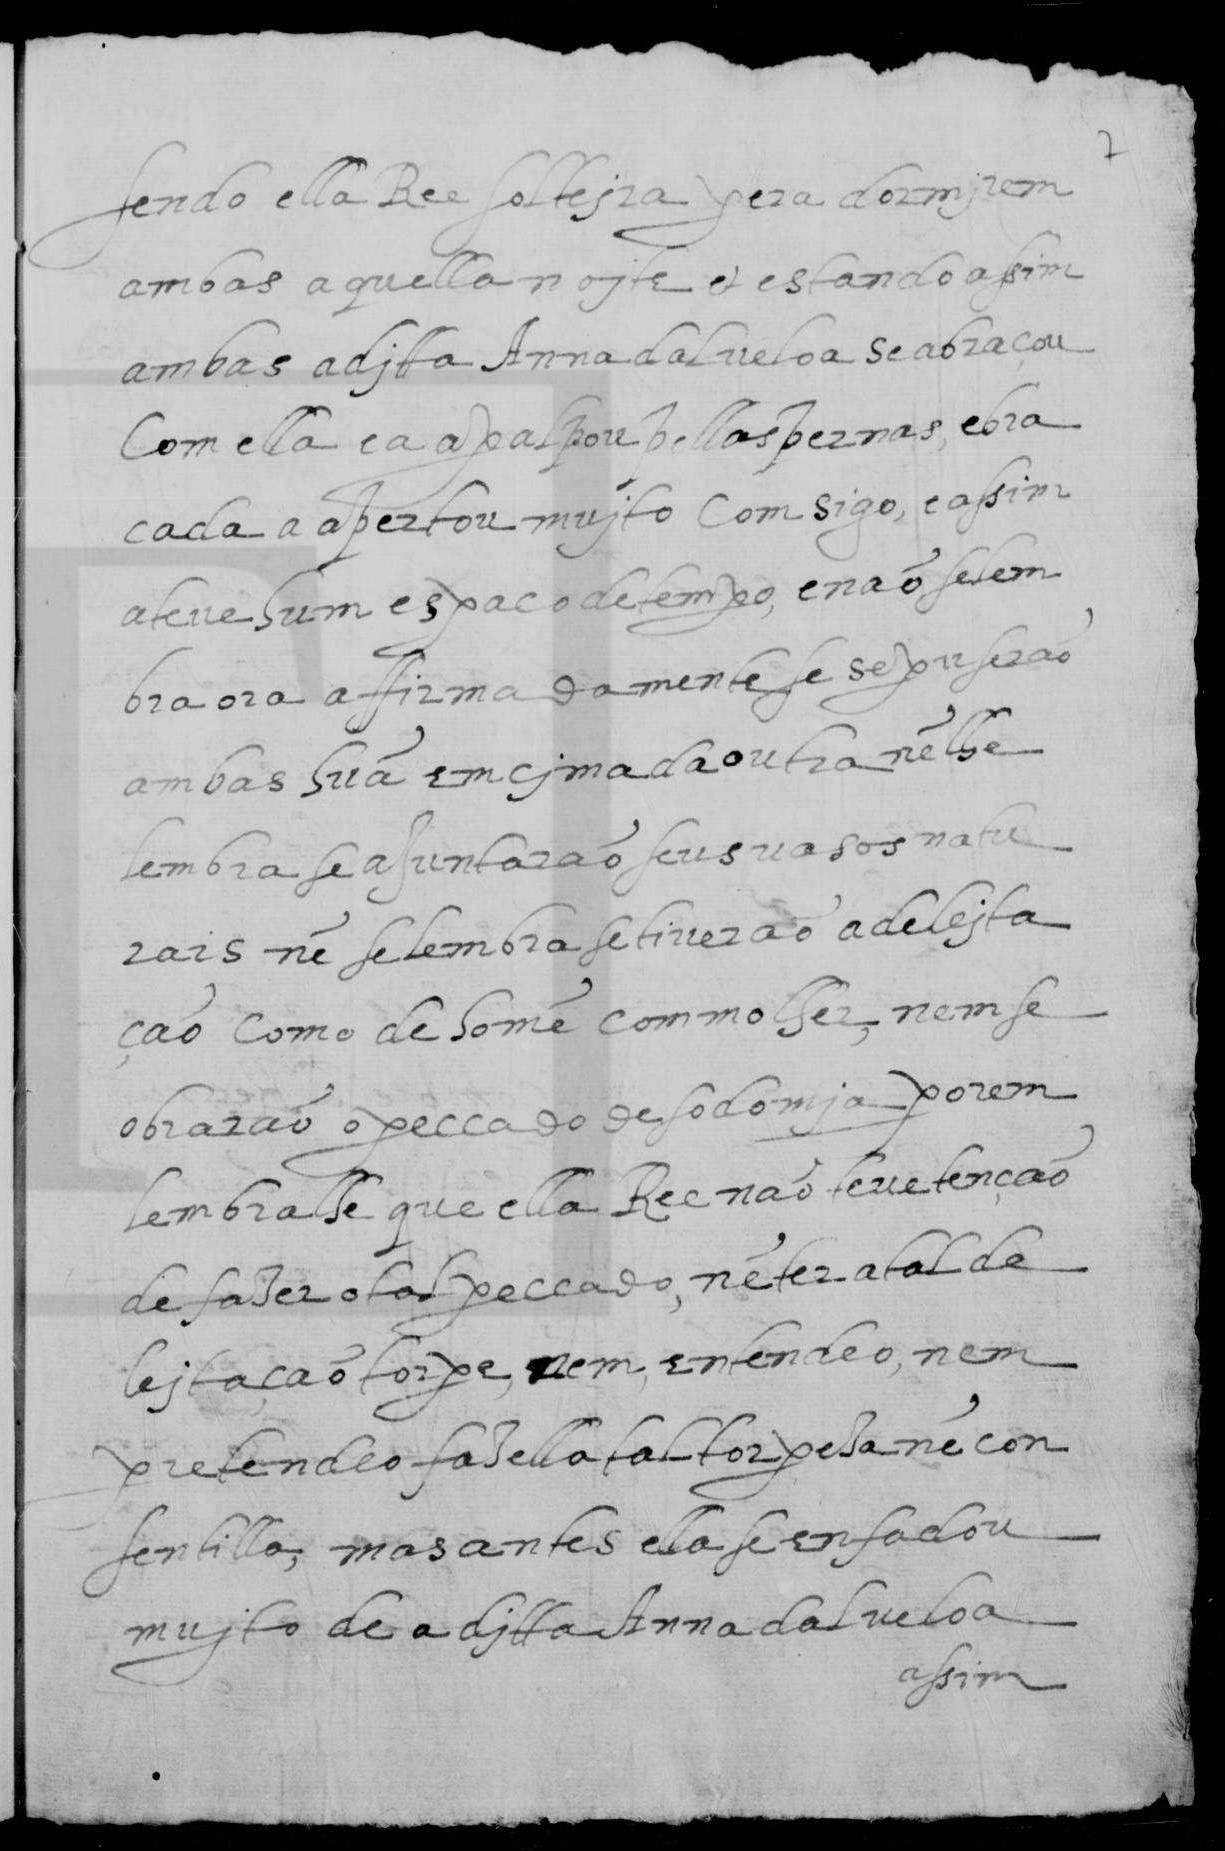 7
sendo ella Ree soltejra pera dormjrem
ambas aquella nojte et estando assim
ambas a djtta Anna dalueloa se abraçou
Com ella e a apalpou pellas pernas, e bra
cada a apertou mujto Com sigo, e assim
a teue hum espaco de tempo, e naõ se lem
bra ora affirmadamente se se puseraõ
ambas huã em cjma da outra nẽ lhe
lembra se ajuntaraõ seus uasos natu
rais nẽ se lembra se tiueraõ a delejta
çaõ Como de homẽ com molher, nem se
obraraõ o peccado de sodomja porem
lembralhe que ella Ree naõ teue tençaõ
de fazer o tal peccado, nẽ ter a tal de
lejtaçaõ torpe, nem, entendeo, nem
pretendeo fazella tal torpeza nẽ con
sentilla, mas antes ella se enfadou
mujto de a djtta Anna dalueloa
assim